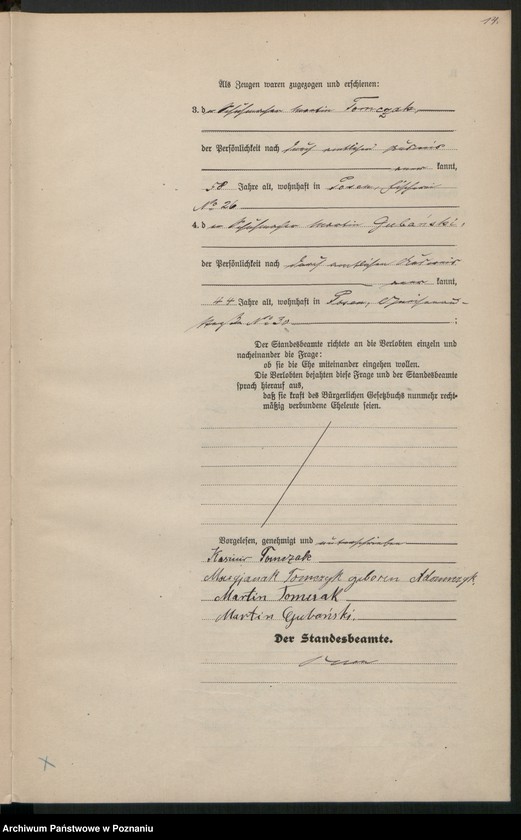 19.
Als Zeugen waren zugezogen und erschienen:
3. der Schuhmacher Martin Tomczak
der Persönlichkeit nach durch amtlichen Ausweis
kannt,
58 Jahre alt, wohnhaft in Posen, Fischerei
No 26
4. der Schuhmacher Martin Gubański,
der Persönlichkeit nach durch amtlichen Ausweis
kannt,
44 Jahre alt, wohnhaft in Posen,
No 30 ;
Der Standesbeamte richtete an die Verlobten einzeln und
nacheinander die Frage:
ob sie die Ehe miteinander eingehen wollen.
Die Verlobten bejahten diese Frage und der Standesbeamte
sprach hierauf aus,
daß sie kraft des Bürgerlichen Gesetzbuchs nunmehr recht-
mäßig verbundene Eheleute seien.
Vorgelesen, genehmigt und unterschrieben
Kasimir Tomczak
Tomczyk geboren Adamczyk
Martin Tomczak
Martin Gubański.
Der Standesbeamte.
Archiwum Państwowe w Poznaniu